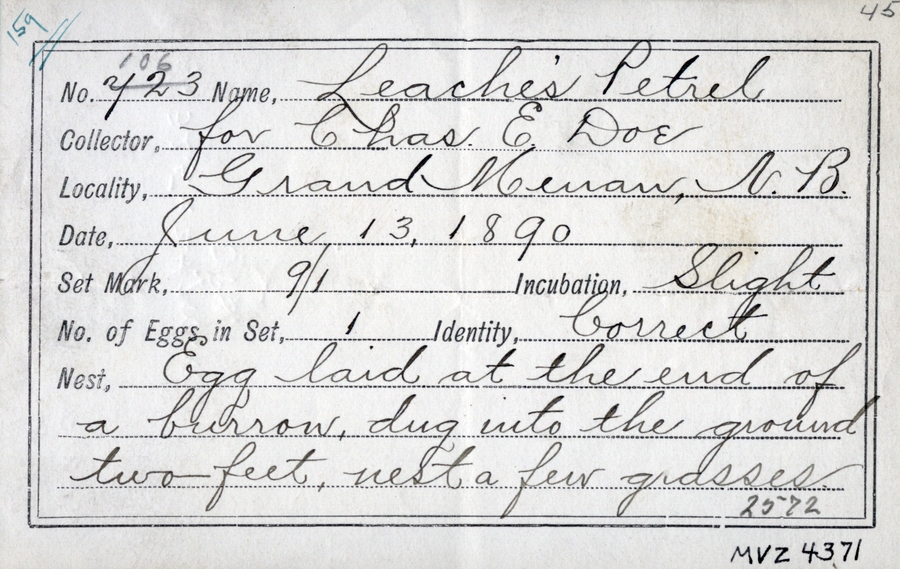 159
45
106
No. 723 Name, Leache's Petrel
Collector, for Chas. E. Doe
Locality, Grand Menan, N. B.
Date, June 13, 1890
Set Mark, 9/1 Incubation, Slight
No. of Eggs in Set, 1 Identity, Correct
Nest, Egg laid at the end of
a burrow, dug into the ground
two feet, nest a few grasses.
2572
MVZ 4371